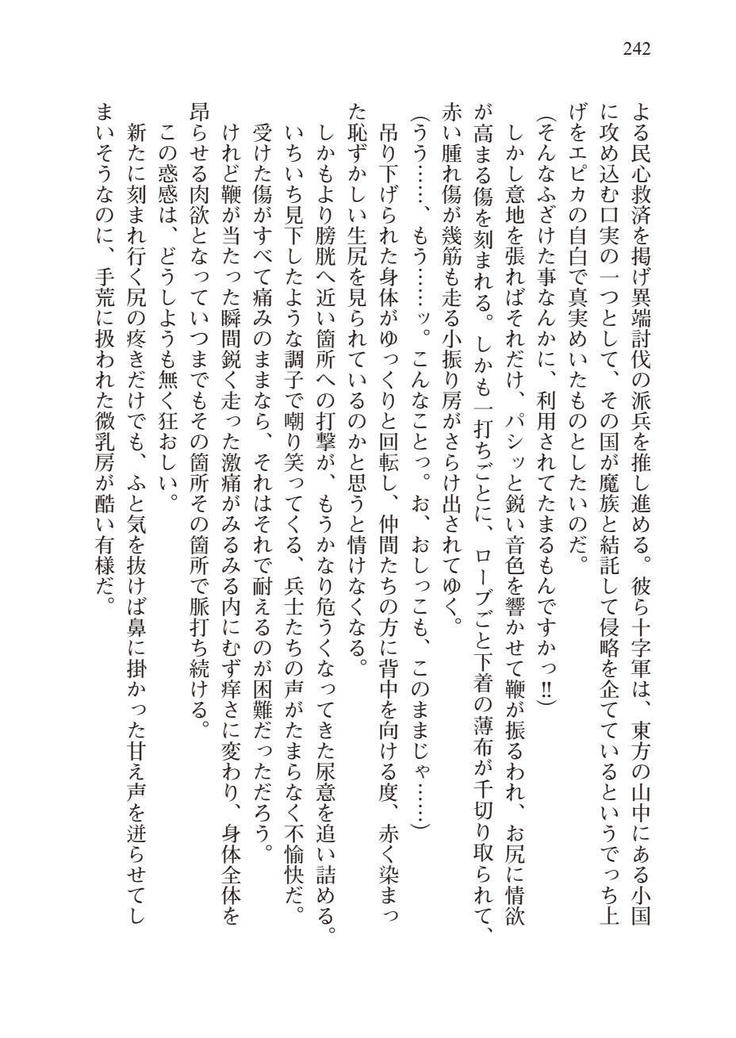 242
よる民心救済を掲げ異端討伐の派兵を推し進める。彼ら十字軍は、東方の山中にある小国
に攻め込む口実の一つとして、その国が魔族と結託して侵略を企てているというでっち上
げをエピカの自白で真実めいたものとしたいのだ。
(そんなふざけた事なんかに、利用されてたまるもんですかっ!!)
しかし意地を張ればそれだけ、パシッと鋭い音色を響かせて鞭が振るわれ、お尻に情欲
が高まる傷を刻まれる。しかも一打ちごとに、ローブごと下着の薄布が千切り取られて、
赤い腫れ傷が幾筋も走る小振り房がさらけ出されてゆく。
(うう……、もう……ッ。こんなことっ。お、おしっこも、このままじゃ……)
吊り下げられた身体がゆっくりと回転し、仲間たちの方に背中を向ける度、赤く染まっ
た恥ずかしい生尻を見られているのかと思うと情けなくなる。
しかもより膀胱へ近い箇所への打撃が、もうかなり危うくなってきた尿意を追い詰める。
いちいち見下したような調子で嘲り笑ってくる、兵士たちの声がたまらなく不愉快だ。
受けた傷がすべて痛みのままなら、それはそれで耐えるのが困難だっただろう。
けれど鞭が当たった瞬間鋭く走った激痛がみるみる内にむず痒さに変わり、身体全体を
昂らせる肉欲となっていつまでもその箇所その箇所で脈打ち続ける。
この惑感は、どうしようも無く狂おしい。
新たに刻まれ行く尻の疼きだけでも、ふと気を抜けば鼻に掛かった甘え声を迸らせてし
まいそうなのに、手荒に扱われた微乳房が酷い有様だ。